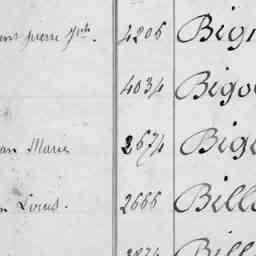 pierre 4205 Bign
4034 Bigo
Marie 2574 Bige
Louis. 2666 Bill
Bill